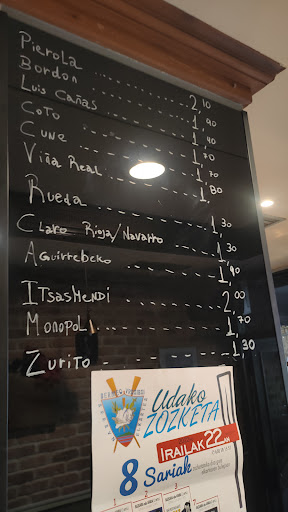 Pierola ... 2,10
Bordon ... 1,90
Luis Cañas ... 1,40
Coto ... 1,70
Cune ... 1,70
Viña Real ... 1,80
Rueda ... 1,30
Claro Rioja/Navarro ... 1,30
Aguirrebeko ... 1,90
Itsasmendi ... 2,00
Monopol ... 1,70
Zurito ... 1,30
Udako
ZOZKETA
IRAILAK 22
8 Sariak